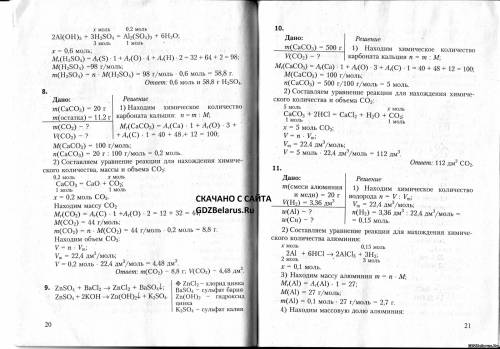 x моль 0,2 моль
2Al(OH)₃ + 3H₂SO₄ = Al₂(SO₄)₃ + 6H₂O;
3 моль 1 моль
x = 0,6 моль;
Mᵣ(H₂SO₄) = Aᵣ(S) · 1 + Aᵣ(O) · 4 + Aᵣ(H) · 2 = 32 + 64 + 2 = 98;
M(H₂SO₄) = 98 г/моль;
m(H₂SO₄) = n · M(H₂SO₄) = 98 г/моль · 0,6 моль = 58,8 г.
Ответ: 0,6 моль и 58,8 г H₂SO₄.
8.
Дано: Решение
m(CaCO₃) = 20 г 1) Находим химическое количество
m(остатка) = 11,2 г карбоната кальция: n = m : M;
m(CO₂) – ? Mᵣ(CaCO₃) = Aᵣ(Ca) · 1 + Aᵣ(O) · 3 +
V(CO₂) – ? + Aᵣ(C) · 1 = 40 + 48 + 12 = 100;
M(CaCO₃) = 100 г/моль;
n(CaCO₃) = 20 г : 100 г/моль = 0,2 моль.
2) Составляем уравнение реакции для нахождения химиче-
ского количества, массы и объема CO₂:
0,2 моль x моль
CaCO₃ = CaO + CO₂
1 моль 1 моль
x = 0,2 моль CO₂.
Находим массу CO₂
Mᵣ(CO₂) = Aᵣ(C) · 1 + Aᵣ(O) · 2 = 12 + 32 = 44
M(CO₂) = 44 г/моль;
m(CO₂) = n · M(CO₂) = 44 г/моль · 0,2 моль = 8,8 г.
Находим объем CO₂:
V = n · Vₘ;
Vₘ = 22,4 дм³/моль;
V = 0,2 моль · 22,4 дм³/моль = 4,48 дм³.
Ответ: m(CO₂) = 8,8 г; V(CO₂) = 4,48 дм³.
9. ZnSO₄ + BaCl₂ → ZnCl₂ + BaSO₄↓; ZnCl₂ – хлорид цинка
ZnSO₄ + 2KOH → Zn(OH)₂↓ + K₂SO₄ BaSO₄ – сульфат бария
Zn(OH)₂ – гидроксид
цинка
K₂SO₄ – сульфат калия
20
СКАЧАНО С САЙТА
GDZBelarus.Ru
10.
Дано: Решение
m(CaCO₃) = 500 г 1) Находим химическое количество
V(CO₂) – ? карбоната кальция n = m : M;
Mᵣ(CaCO₃) = Aᵣ(Ca) · 1 + Aᵣ(O) · 3 + Aᵣ(C) · 1 = 40 + 48 + 12 = 100;
M(CaCO₃) = 100 г/моль;
n(CaCO₃) = 500 г/100 г/моль = 5 моль.
2) Составляем уравнение реакции для нахождения химиче-
ского количества и объема CO₂:
5 моль x моль
CaCO₃ + 2HCl = CaCl₂ + H₂O + CO₂↑
1 моль 1 моль
x = 5 моль CO₂;
V = n · Vₘ;
Vₘ = 22,4 дм³/моль;
V = 5 моль · 22,4 дм³/моль = 112 дм³.
Ответ: 112 дм³ CO₂.
11.
Дано: Решение
m(смеси алюминия 1) Находим химическое количество
и меди) = 20 г водорода n = V : Vₘ;
V(H₂) = 3,36 дм³ Vₘ = 22,4 дм³/моль;
w(Al) – ? n(H₂) = 3,36 дм³ : 22,4 дм³/моль =
= 0,15 моль.
2) Составляем уравнение реакции для нахождения химиче-
ского количества алюминия:
x моль 0,15 моль
2Al + 6HCl → 2AlCl₃ + 3H₂;
2 моль 3 моль
x = 0,1 моль.
3) Находим массу алюминия m = n · M;
Mᵣ(Al) = Aᵣ(Al) · 1 = 27;
M(Al) = 27 г/моль;
m(Al) = 0,1 моль · 27 г/моль = 2,7 г.
4) Находим массовую долю алюминия:
21